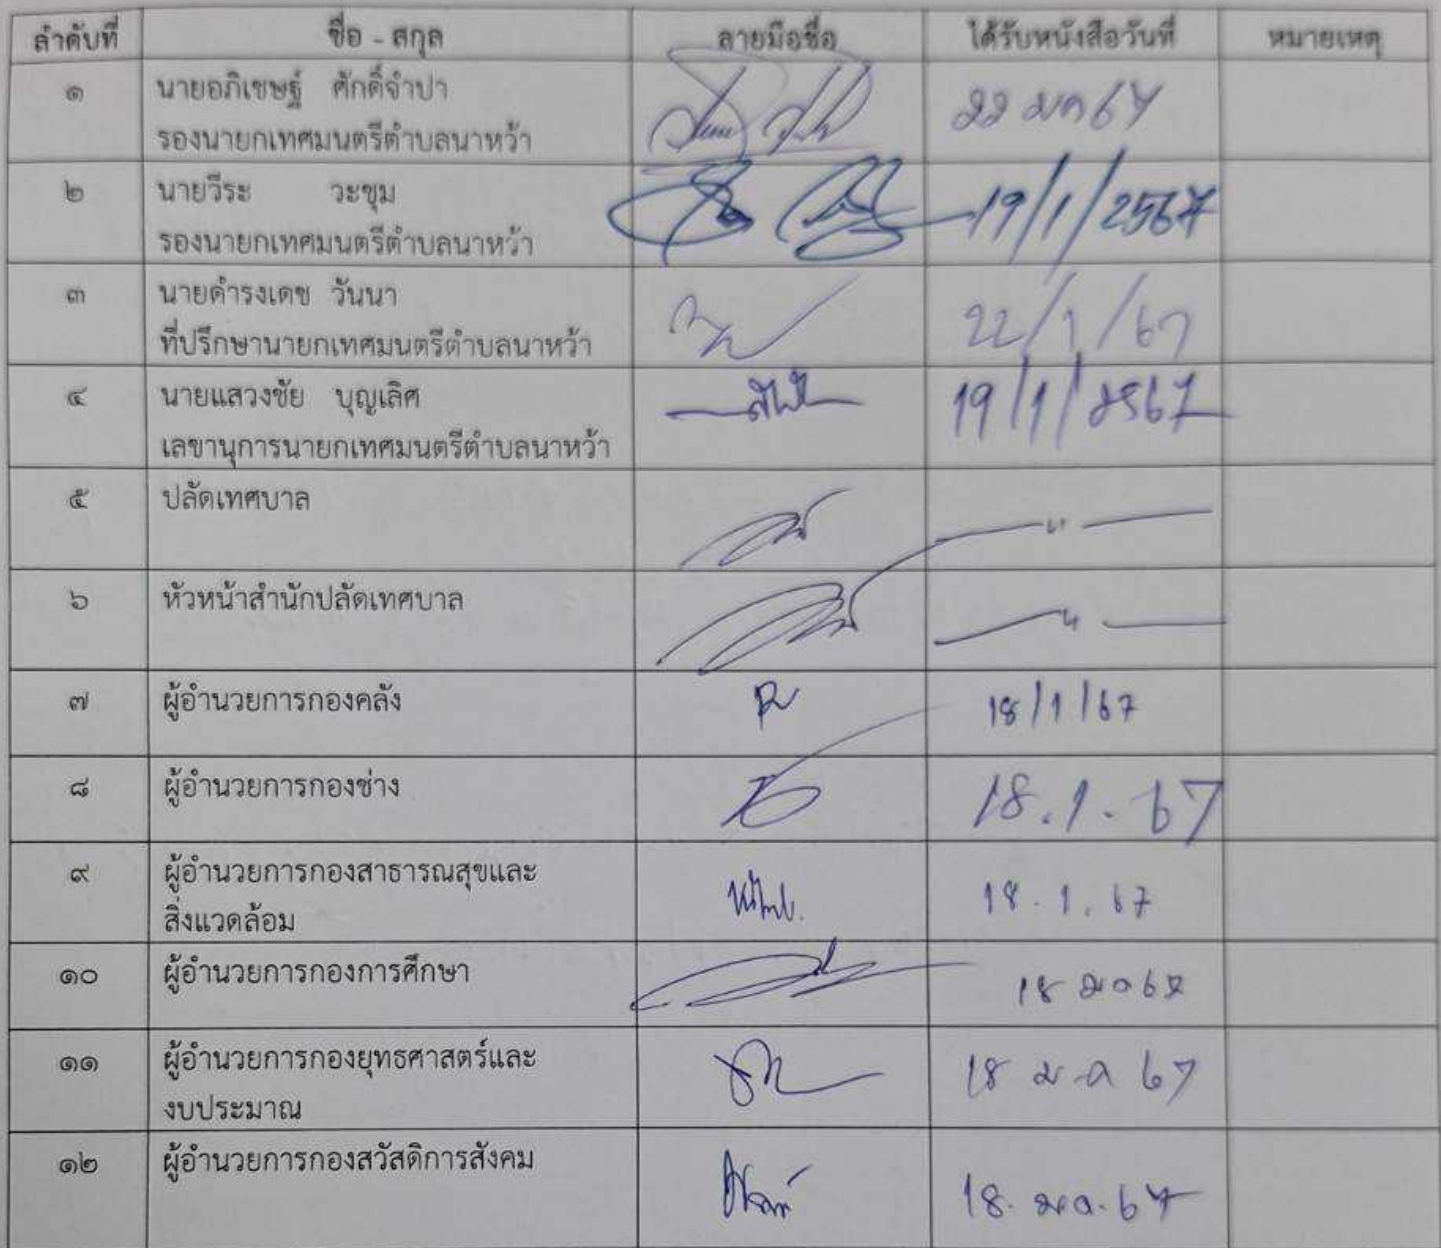 ลำดับที่ ชื่อ - สกุล ลายมือชื่อ ได้รับหนังสือวันที่ หมายเหตุ
๑ นายอภิเชษฐ์ ศักดิ์จำปา 22 มค 67
รองนายกเทศมนตรีตำบลนาหว้า
๒ นายวีระ วะขุม 19/1/2567
รองนายกเทศมนตรีตำบลนาหว้า
๓ นายดำรงเดช วันนา 22/1/67
ที่ปรึกษานายกเทศมนตรีตำบลนาหว้า
๔ นายแสวงชัย บุญเลิศ 19/1/2567
เลขานุการนายกเทศมนตรีตำบลนาหว้า
๕ ปลัดเทศบาล
๖ หัวหน้าสำนักปลัดเทศบาล
๗ ผู้อำนวยการกองคลัง 18/1/67
๘ ผู้อำนวยการกองช่าง 18.1.67
๙ ผู้อำนวยการกองสาธารณสุขและ 18.1.67
สิ่งแวดล้อม
๑๐ ผู้อำนวยการกองการศึกษา 18 มค 67
๑๑ ผู้อำนวยการกองยุทธศาสตร์และ 18 ม.ค 67
งบประมาณ
๑๒ ผู้อำนวยการกองสวัสดิการสังคม 18. มค. 67